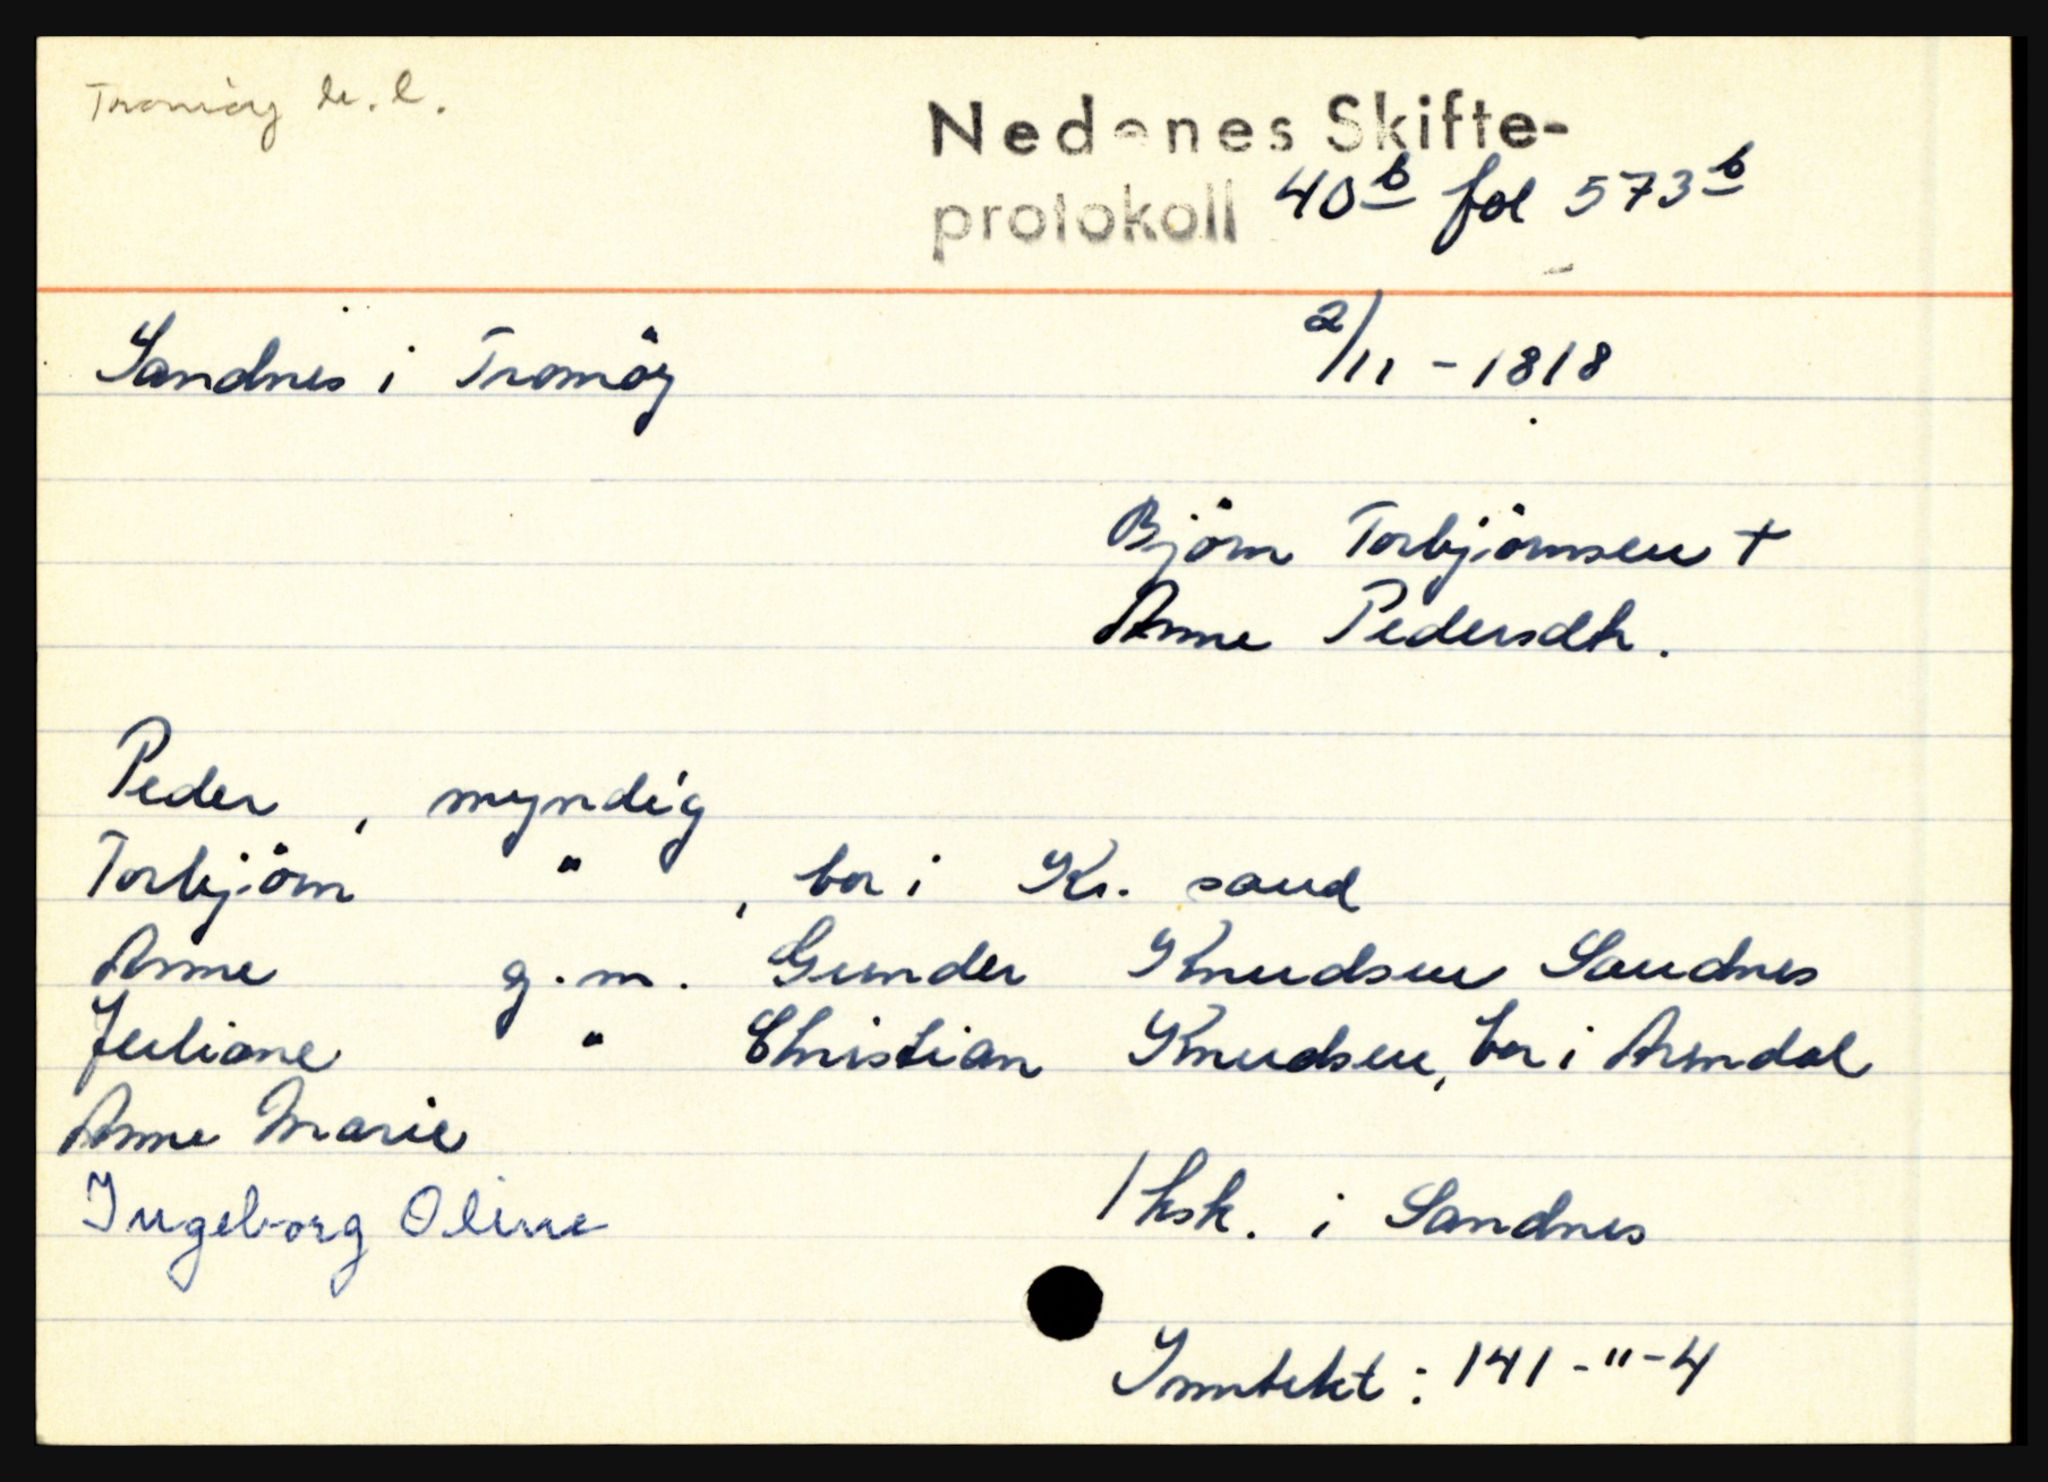 Tromöy k.l.
Nedenes Skifte-
protokoll 40b fol 573b
Sandnes i Tromöy 2/11 - 1818
Björn Torbjörnsen +
Anne Pedersdtr.
Peder , myndig
Torbjörn " , bor i Kr. sand
Anne g.m. Gunder Knudsen Sandnes
Juliane " Christian Knudsen, bor i Arendal
Anne Marie
Ingeborg Oline
1 hsk. i Sandnes
Inntekt : 141 - " - 4